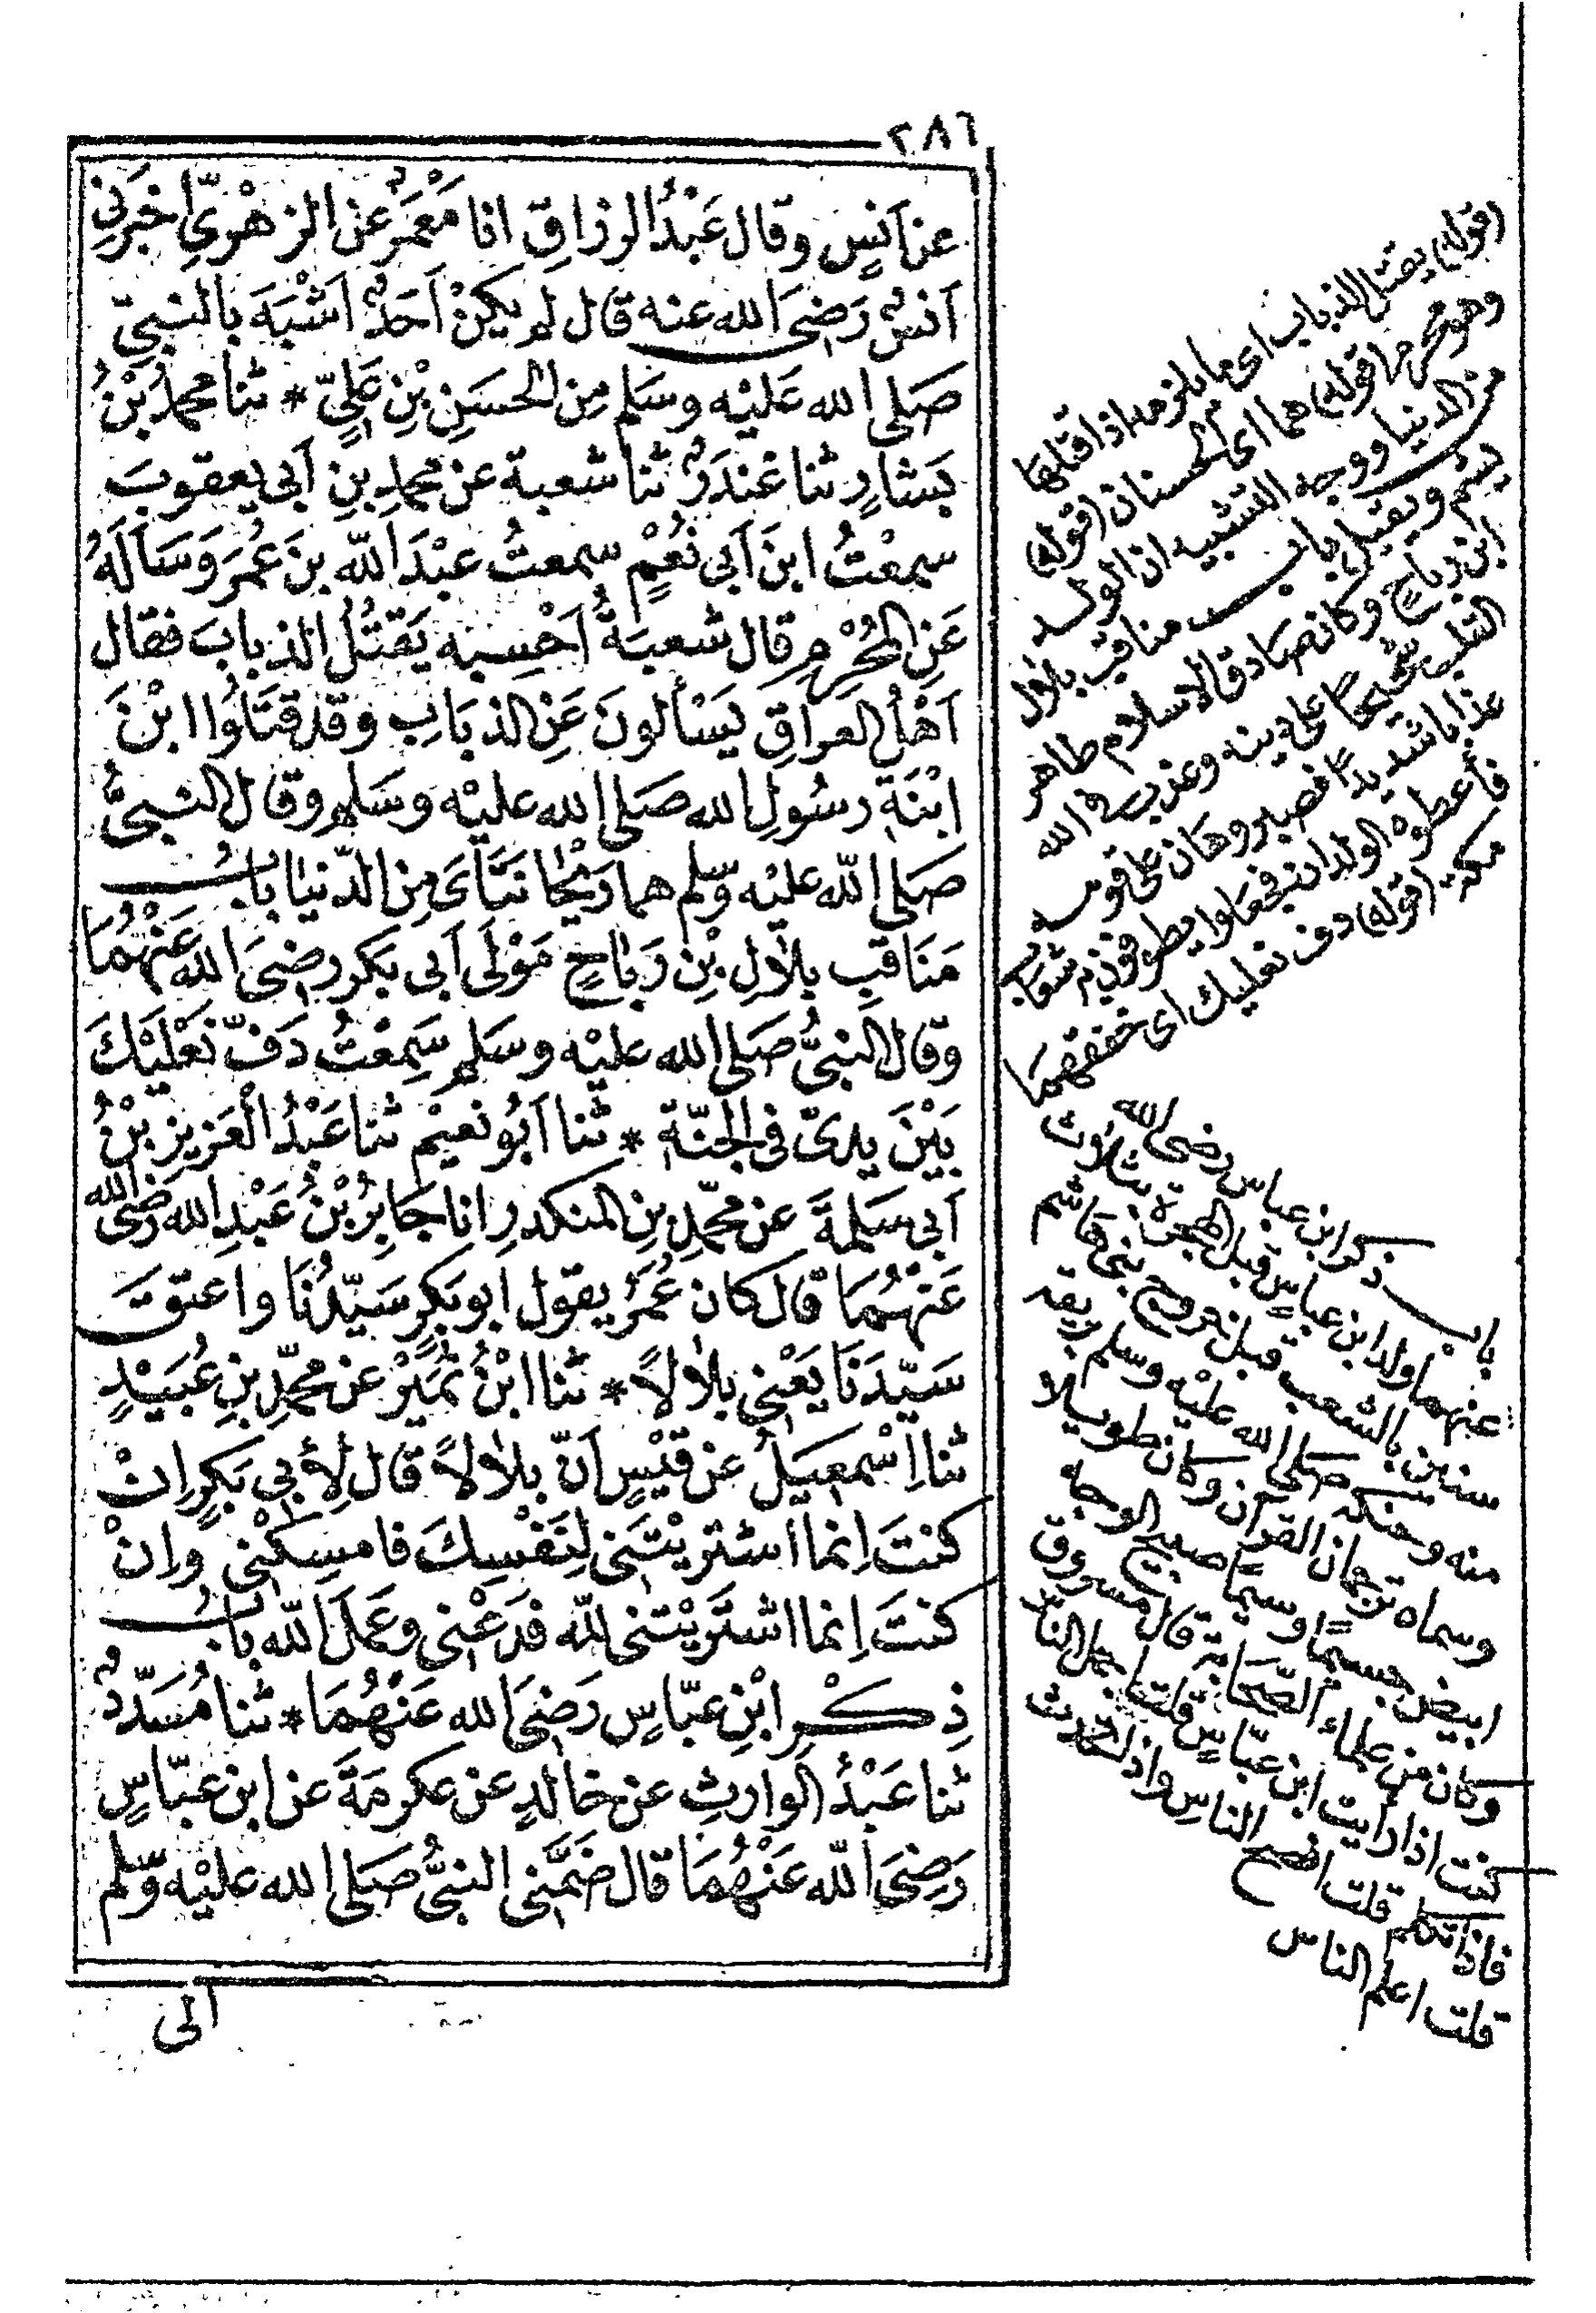 ٢٨٦
عن اَنَسٍ وقال عَبْدُ الرزاقِ انا مَعْمَرٌ عن الزهْرِيّ اخبَرَنِي
اَنَسٌ رَضِىَ الله عنه قال لم يكنْ اَحَدٌ اَشْبَهَ بالنبىِّ
صَلى الله عَليْه وسَلم مِن الحسَنِ بْنِ عَلِيّ * ثنا محمدُ بْنُ
بَشارٍ ثنا غندَرٌ ثنا شعبة عن محمدِ بنِ اَبى يعقوبَ
سمعْتُ ابنَ اَبى نُعْمٍ سمعتُ عبْدَ اللّه بنَ عُمَرَ وَسَاَلَهُ
عَنِ المُحْرِمِ قال شعبَةُ اَحْسِبه يَقتُلُ الذبابَ فقال
اَهْلُ العرَاقِ يَسْألونَ عَنِ الذبَابِ وقد قتَلُوا ابْنَ
ابْنَةِ رسُولِ الله صَلى الله عليْه وسَلم وقال النبىُّ
صَلى اللّه عليْه وسّلم هما رَيْحَانتَاىَ مِن الدّنيا بابُ
مَنَاقبِ بِلَالِ بْنِ رَبَاحٍ مَوْلَى اَبى بَكرٍ رضِىَ الله عَنْهُمَا
وقال النبىُّ صَلى الله عليْه وسَلم سَمِعْتُ دَفّ نَعْلَيْكَ
بَيْنَ يدىّ فى الجنّة * ثنا اَبُو نعيْم ثنا عَبْدُ الْعَزيزِ بْنُ
اَبى سَلمَةَ عن محمّدِ بنِ المنكدرِ انا جَابِرُ بْنُ عَبْدِ الله رَضىَ الله
عَنْهُمَا قال كان عُمَرُ يقول ابو بَكرٍ سَيّدُنَا واعتقَ
سَيّدَنَا يَعْنِى بِلالاً * ثنا ابْنُ نُمَيْرٍ عن محمّدِ بنِ عُبَيْدٍ
ثنا اِسْمعِيلُ عن قيْسٍ اَنّ بلالاً قال لِأَبى بَكرٍ اِنْ
كنتَ اِنما اشتريْتَنى لِنَفْسِكَ فامسِكْنى وانْ
كنتَ اِنما اشتَرَيْتنى للّه فدَعْنى وعَمَلَ اللّه بابُ
ذِكْرِ ابْنِ عبّاسٍ رَضىَ الله عَنْهُمَا * ثنا مُسَدّدٌ
ثنا عَبْدُ الوارثِ عن خالدٍ عن عكرمَةَ عن ابن عبّاسٍ
رَضِىَ اللّه عَنْهُمَا قال ضَمَّنى النبىُّ صَلى الله عليْه وسّلم
الى
(قوله) يقتل الذباب اى ما يلزمه اذا قتلها
وهو محرم (قوله) هما اى الحسنان (قوله)
من الدنيا ووجه التشبيه ان الولد
يشم ويقبل باب مناقب بلال
ابن رباحٍ وكان صادق الاسلام طاهر
القلب شحيحًا على دينه وعذب فى الله
عذابا شديدًا فصبر وهان على قومه
فأعطوه الولدان فجعلوا يطوفون به شعاب
مكة (قوله) دف نعليك اى خفقهما
باب ذكر ابن عباس رضى الله
عنهما ولد ابن عباسٍ قبل الهجرة بثلاث
سنين بالشعب قبل خروج بنى هاشم
منه وحنكه صلى الله عليْه وسلم بريقه
وسماه ترجمان القرآن وكان طويلا
ابيض جسيمًا وسيمًا صبيح الوجه
وكان من علماء الصّحابة قال مسروق
كنت اذا رأيت ابن عبّاسٍ قلت اجمل الناس
فاذا تكلم قلت افصح الناس واذا تحدث
قلت اعلم الناس